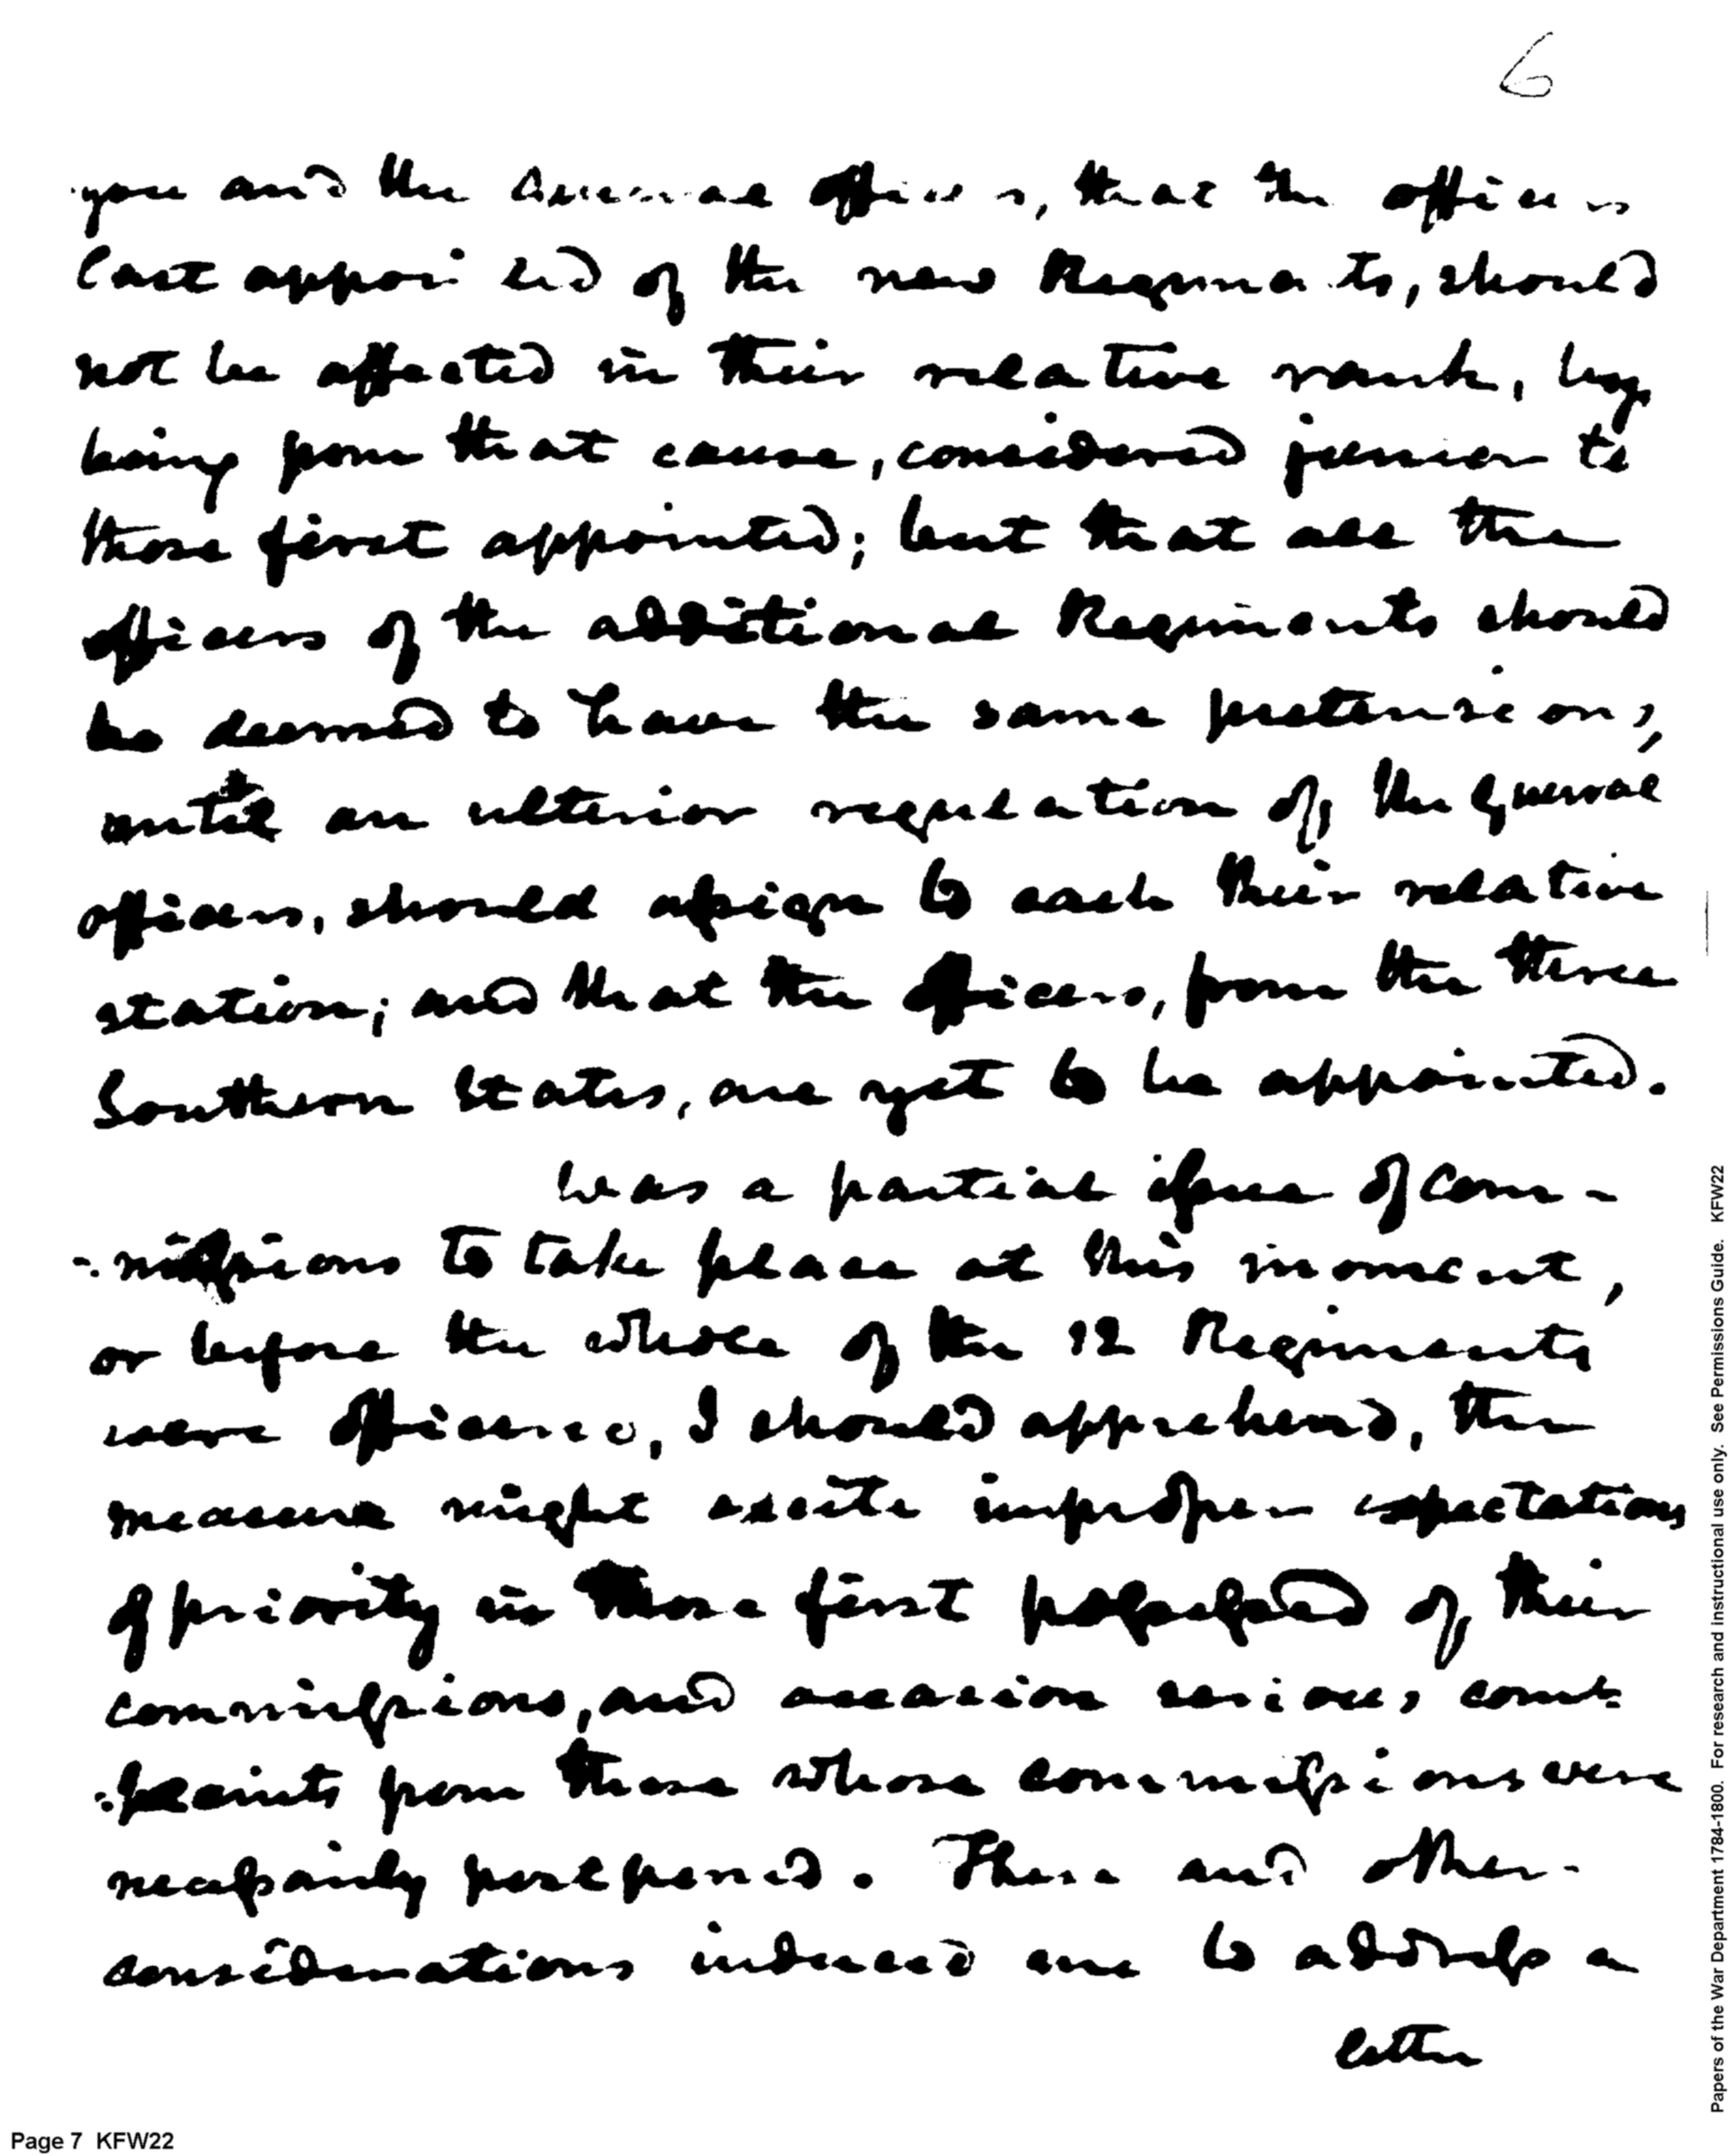 6
you and the General officers, that the officers
last appointed of the new Regiments, should
not be affected in their relative rank, by
being from that cause, considered junior to
those first appointed; but that all the
officers of the additional Regiments should
be deemed to have the same pretensions,
until an ulterior regulation of the general
officers, should assign to each their relative
station; and that the officers, from the three
Southern States, are yet to be appointed.
Was a partial issue of com-
-missions to take place at this moment,
or before the whole of the 12 Regiments
were officered, I should apprehend, the
measure might excite improper expectations
of priority in those first possessed of their
commissions, and occasion serious com-
-plaints from those whose commissions were
necessarily postponed. These and other
considerations induced me to address a
letter
Page 7 KFW22
Papers of the War Department 1784-1800. For research and instructional use only. See Permissions Guide. KFW22